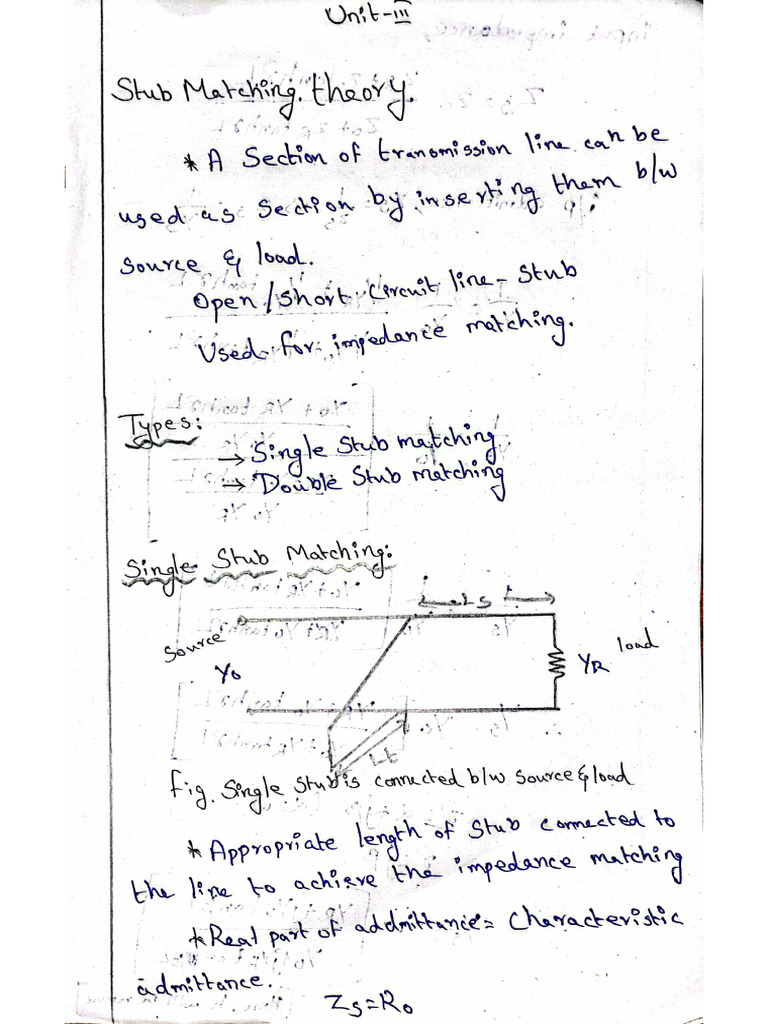 Unit-III
Stub Matching theory.
* A Section of transmission line can be
used as Section by inserting them b/w
source & load.
Open/Short Circuit line - Stub
Used for impedance matching.
Types:
→ Single Stub matching
→ Double Stub matching
Single Stub Matching:
Ls
Source
Yo
YR
load
Lt
fig. Single Stub is connected b/w source & load
* Appropriate length of Stub connected to
the line to achieve the impedance matching
* Real part of addmittance = Characteristic
admittance.
Zs = Ro